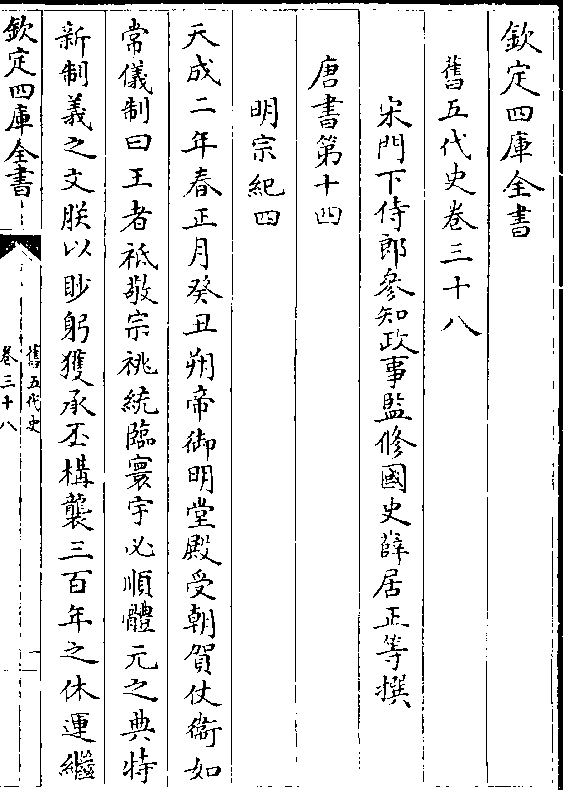 欽定四庫全書
舊五代史卷三十八
宋門下侍郎參知政事監修國史薛居正等撰
唐書第十四
明宗紀四
天成二年春正月癸丑朔帝御明堂殿受朝賀仗衞如
常儀制曰王者祗敬宗祧統臨寰宇必順體元之典特
新制義之文朕以眇躬獲承丕構襲三百年之休運繼
欽定四庫全書
舊五代史
卷三十八
一